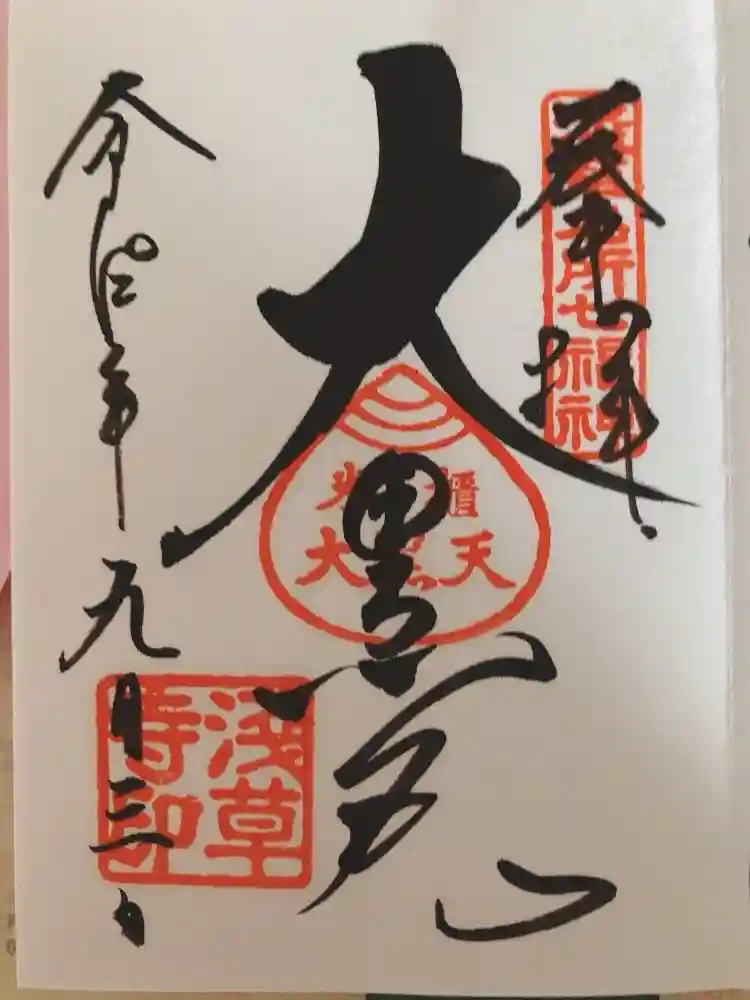 奉拝
浅草名所七福神
大黒天
米櫃
大黒天
令和二年九月三日
浅草寺印